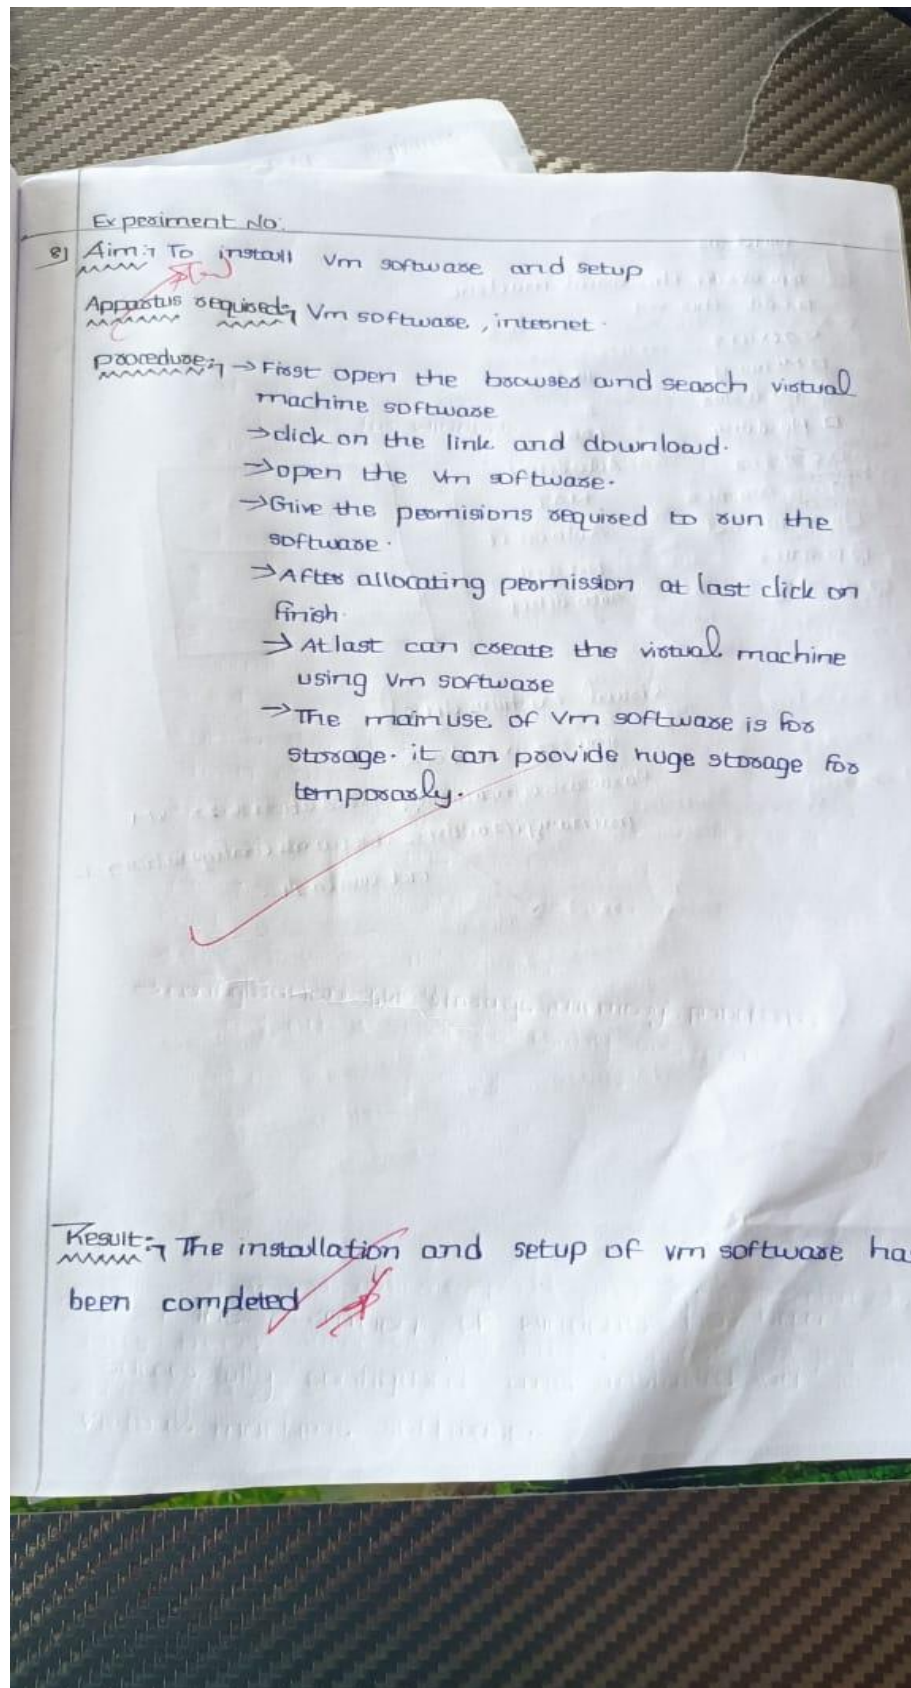 Experiment No:
8) Aim:- To install Vm software and setup
Apparstus required:- Vm software, internet.
procedure:- → First open the browser and search virtual
machine software
→ click on the link and download.
→ open the Vm software.
→ Give the permisions required to run the
software.
→ After allocating permission at last click on
finish.
→ At last can create the virtual machine
using Vm software
→ The main use of Vm software is for
storage. it can provide huge storage for
temporarly.
Result:- The installation and setup of vm software ha
been completed